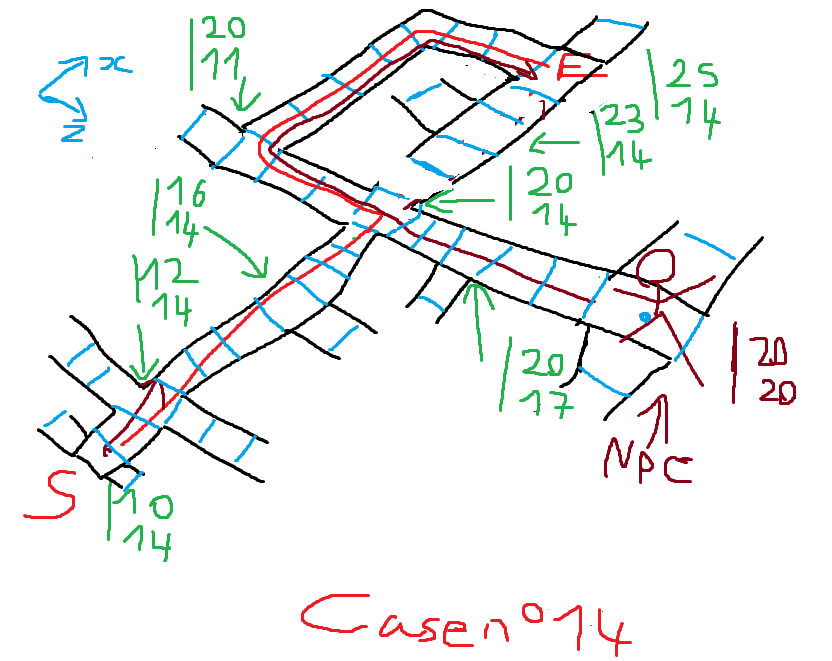 20
11
x
z
E
25
14
23
14
20
14
16
14
12
14
20
17
20
20
NPC
S
10
14
Case n°14